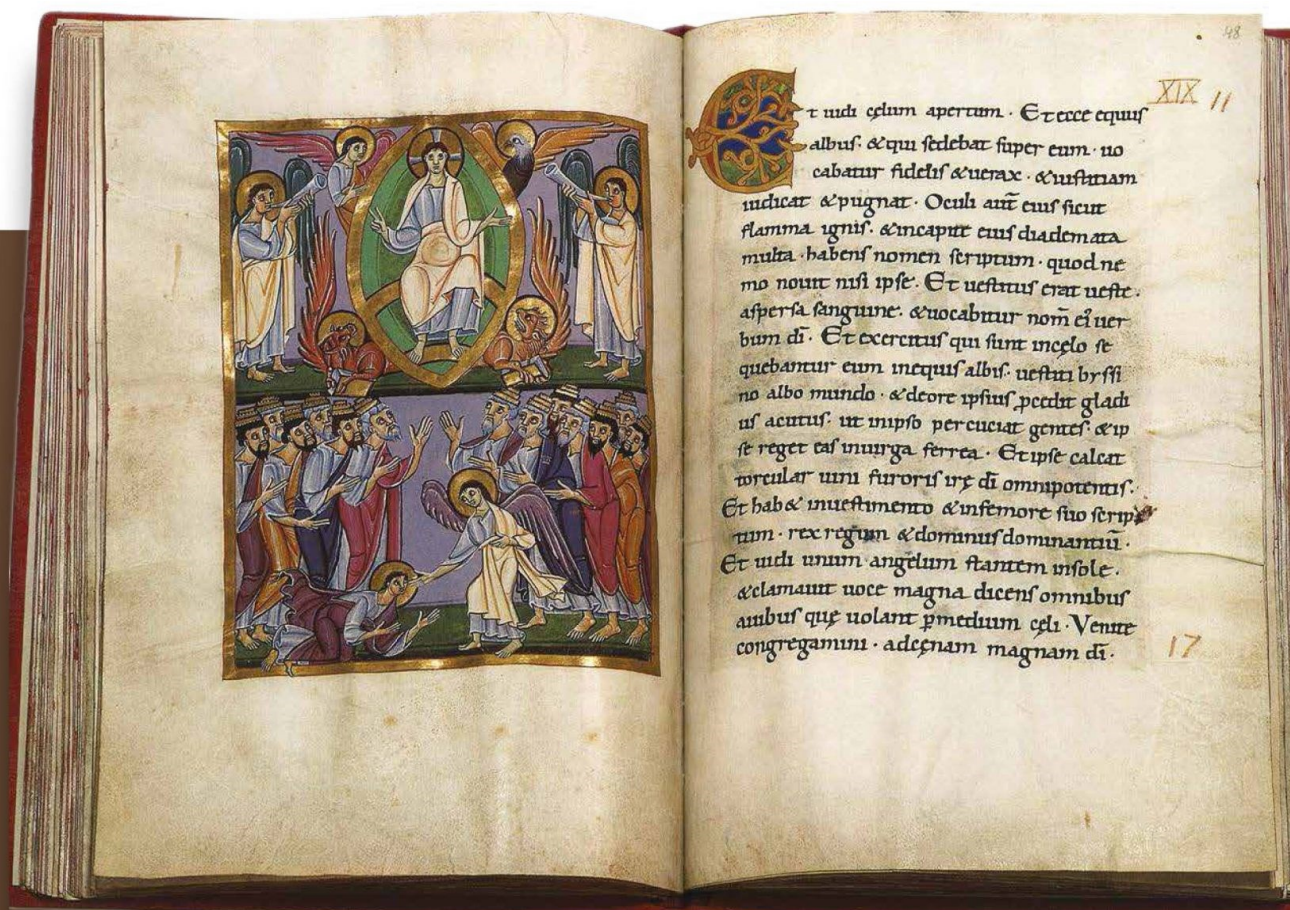 48
XIX 11
Et uidi cęlum apertum · Et ecce equus
albus · & qui sedebat super eum · uo
cabatur fidelis & uerax · & iustitiam
iudicat & pugnat · Oculi aut̄ eius sicut
flamma ignis · & incapite eius diademata
multa · habens nomen scriptum · quod ne
mo nouit nisi ipse · Et uestitus erat ueste ·
aspersa sanguine · & uocabitur nom̄ ei᷒ uer
bum dī · Et exercitus qui sunt incęlo se
quebantur eum inequis albis · uestiti byssi
no albo mundo · & deore ipsius ꝓcedit gladi
us acutus · ut inipso percuciat gentes · & ip
se reget eas inuirga ferrea · Et ipse calcat
torcular uini furoris irę dī omnipotentis ·
Et hab& inuestimento & infemore suo scrip
tum · rex regum & dominus dominantiū ·
Et uidi unum angelum stantem insole ·
& clamauit uoce magna dicens omnibus
auibus quę uolant ꝑmedium cęli · Venite
congregamini · adcęnam magnam dī ·
17